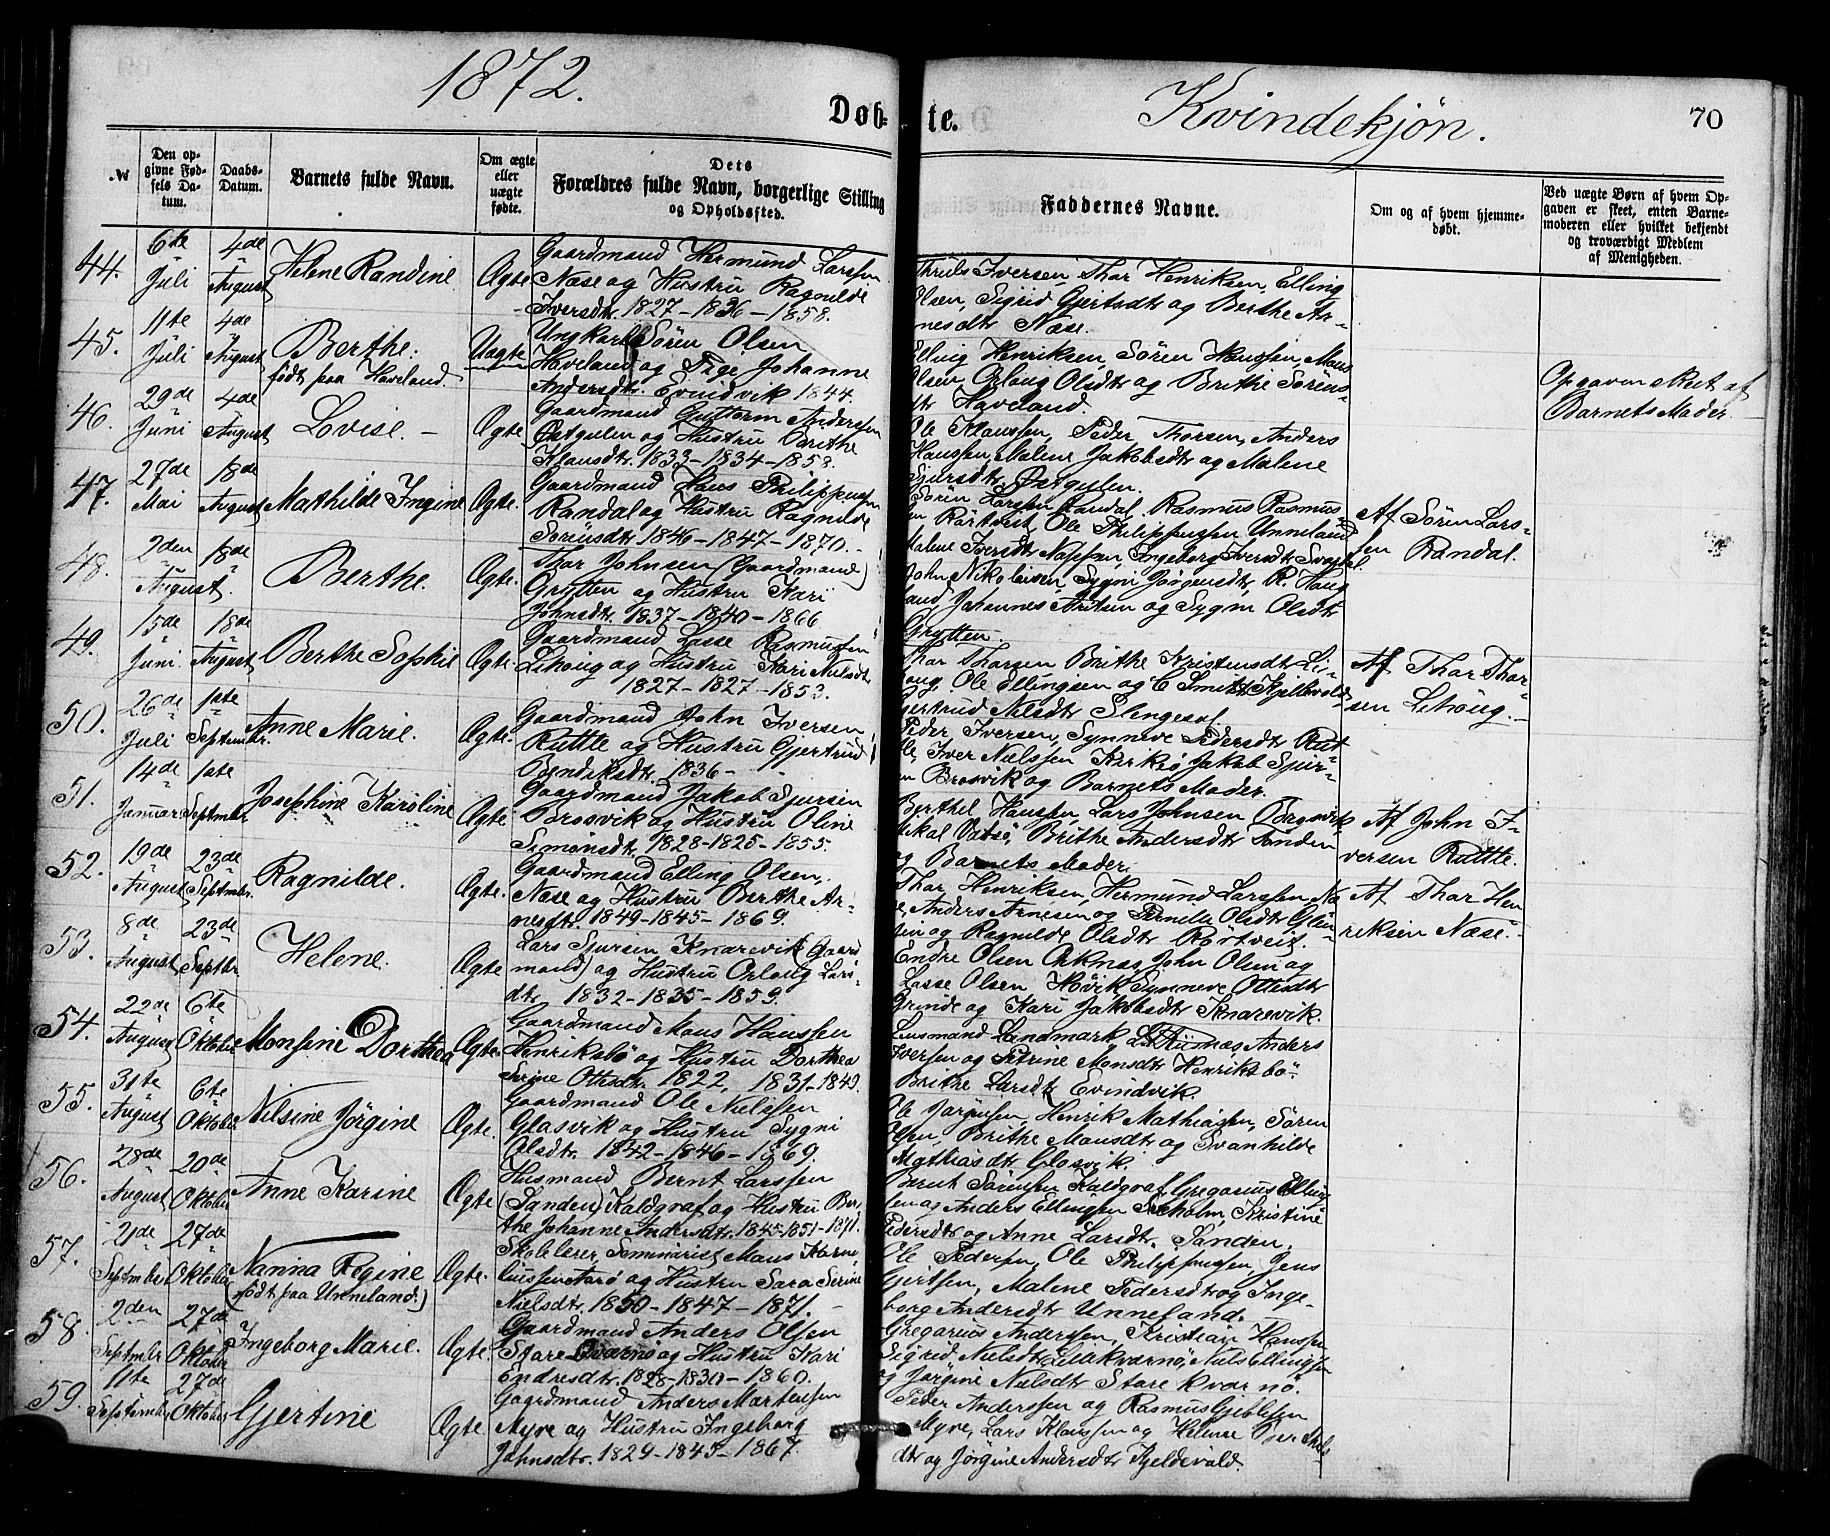 1872.
Døb- te.
Kvindekjøn.
70
№
Den op-
givne Fød-
sels Da-
tum.
Daabs-
Datum.
Barnets fulde Navn.
Om ægte
eller
uægte
fødte.
Dets
Forældres fulde Navn, borgerlige Stilling
og Opholdssted.
Faddernes Navne.
Om og af hvem hjemme-
døbt.
Ved uægte Børn af hvem Op-
gaven er skeet, enten Barne-
moderen eller hvilket bekjendt
og troværdigt Medlem
af Menigheden.
44. 6te Juli 4de August Helene Randine Ægte
Gaardmand Hermund Larssen
Næse og Hustru Ragnilde
Iversdtr. 1827 - 1836 - 1858.
Iversen, Thor Henriksen, Elling
Olsen, Sigrid Gjertsdtr og Berthe Ar-
nesdtr Næse.
45. 11te Juli 4de August Berthe.
født paa Haveland. Uægte
Ungkarl Søren Olsen
Haveland og Pige Johanne
Andersdtr. Evindvik 1844.
Elling Henriksen, Søren Hanssen, Mons
Olsen, Orlaug Olsdtr og Brithe Sørens-
dtr Haveland.
Opgaven skeet af
Barnets Moder.
46. 29de Juni 4de August Lovise. Ægte
Gaardmand Guttorm Anderssen
Østgulen og Hustru Brithe
Klausdtr. 1833 - 1834 - 1858.
Ole Klaussen, Peder Thorsen, Anders
Hanssen, Malene Jakobsdtr og Malene
Sjursdtr Østgulen.
47. 27de Mai 18de August Mathilde Ingine Ægte.
Gaardmand Hans Philippussen
Randal og Hustru Ragnilde
Sørensdtr 1846 - 1847 - 1870.
Søren Larssen Randal, Rasmus Rasmus-
sen Rørtveit, Ole Philippussen Unneland
Malene Iversdtr Nappen, Ingeborg Iversdtr
Af Søren Lars-
sen Randal.
48. 2den August. 18de Berthe. Ægte.
Thor Johnsen (Gaardmand)
Grytten og Hustru Kari
Johnsdtr. 1837 - 1840 - 1866
John Nikolaisen, Sygni Jørgensdtr, R. Haug-
land, Johannes og Sygni Olsdtr
Grytten.
49. 15de Juni 18de August Berthe Sophie Ægte
Gaardmand Lasse Rasmussen
Lihoug og Hustru Kari Nilsdtr
1827 - 1827 - 1853.
Thor Thorsen, Brithe Kristensdtr Li-
houg, Ole Ellingsen og C Smith Kjellevold
Gjertrud Nilsdtr Slengesol.
Af Thor Thor-
sen Lihoug.
50. 26de Juli 1ste Septembr. Anne Marie. Ægte.
Gaardmand John Iversen
Ruttle og Hustru Gjertrud
Bendiksdtr. 1836 -
Peder Iversen, Synneve Pedersdtr Rut-
tle, Iver Nielssen Kirkeø, Jakob Sjur-
sen Brosvik og Barnets Moder.
51. 14de Januar 1ste Septmbr. Josephine Karoline Ægte
Gaardmand Jakob Sjursen
Brosvik og Hustru Oline
Simonsdtr. 1828 - 1825 - 1855.
Berthel Hanssen, Lars Johnsen Brosvik
Mikal Brithe Andersdtr
og Barnets Moder.
Af John I-
versen Ruttle.
52. 19de August 23de Septmbr. Ragnilde. Ægte.
Gaardmand Elling Olsen,
Næse og Hustru Berthe Ar-
nesdtr. 1849 - 1845 - 1869.
Thor Henriksen, Hermund Larssen Næ-
se, Anders Arnesen og Pernille Olsdtr
og Ragnilde Olsdtr Rørtveit.
Af Thor Hen-
riksen Næse.
53. 8de August 23de Septbr Helene. Ægte
Lars Sjursen Knarevik (Gaard-
mand) og Hustru Orlaug Lars-
dtr. 1832 - 1835 - 1859.
Endre Olsen Arknæs, John Olsen og
Lasse Olsen Høvik, Synneve Ottesdtr
Grinde og Kari Jakobsdtr Knarevik.
54. 22de August 6te Oktober Monsine Dorthea Ægte.
Gaardmand Mons Hanssen
Henriksbø og Hustru Dorthea
Serine Ottesdtr. 1822, 1831 - 1849.
Lensmand Landmark, Anders
Iversen og Petrine Monsdtr Henriksbø
Brithe Larsdtr Evindvik.
55. 31te August 6te Oktober Nilsine Jørgine Ægte.
Gaardmand Ole Nielssen
Glosvik og Hustru Sygni
Olsdtr. 1842 - 1846 - 1869.
Ole Jørgensen, Henrik Mathiassen, Søren
Olsen, Brithe Monsdtr og Svanhilde
Mathiasdtr Glosvik.
56. 28de August 20de Oktober Anne Karine Ægte
Husmand Bernt Larssen
(Sanden) Kaldgraf og Hustru Ber-
the Johanne Andersdtr. 1845 - 1851 - 1871.
Bernt Sørensen Kaldgraf, Gregorius Elling-
sen og Anders Ellingsen Kristine
Pedersdtr og Anne Larsdtr. Sanden.
57. 21de Septmber 27de Oktober Nanna Regine
(født paa Unneland.) Ægte.
Skolelærer, Seminarist Mons Korne-
liussen Aarø og Hustru Sara Serine
Nielsdtr. 1850 - 1847 - 1871.
Ole Pedersen, Ole Philippussen, Jens
Gjertsen, Malene Pedersdtr og Inge-
borg Andersdtr Unneland.
58. 2den Septmbr 27de Oktober Ingeborg Marie. Ægte
Gaardmand Anders Olsen
Store Kvernø og Hustru Kari
Endresdtr. 1828 - 1830 - 1860.
Gregorius Anderssen, Kristian Hanssen
Sigrid Nielsdtr Lille Kvernø, Niels Ellingsen
og Jørgine Nielsdtr Store Kvernø.
59. 11te Septmber 27de Oktober Gjertine Ægte
Gaardmand Anders Mortensen
Myre og Hustru Ingeborg
Johnsdtr. 1829 - 1845 - 1867.
Peder Anderssen og Rasmus
Myre, Lars Klaussen og Helene
dtr og Jørgine Andersdtr Kjeldevold.